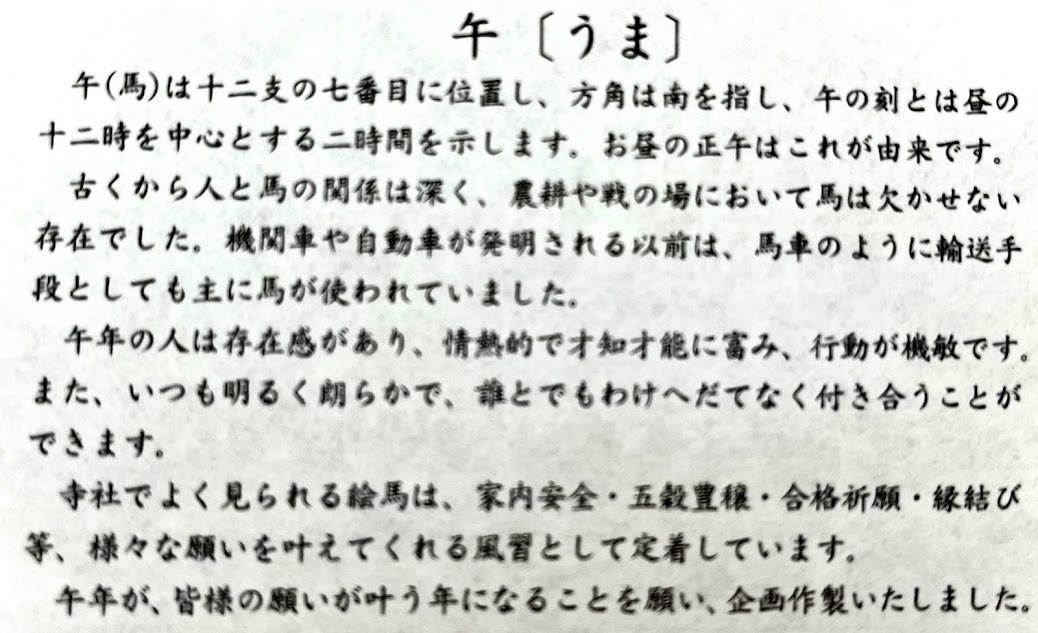 午〔うま〕
午(馬)は十二支の七番目に位置し、方角は南を指し、午の刻とは昼の
十二時を中心とする二時間を示します。お昼の正午はこれが由来です。
古くから人と馬の関係は深く、農耕や戦の場において馬は欠かせない
存在でした。機関車や自動車が発明される以前は、馬車のように輸送手
段としても主に馬が使われていました。
午年の人は存在感があり、情熱的で才知才能に富み、行動が機敏です。
また、いつも明るく朗らかで、誰とでもわけへだてなく付き合うことが
できます。
寺社でよく見られる絵馬は、家内安全・五穀豊穣・合格祈願・縁結び
等、様々な願いを叶えてくれる風習として定着しています。
午年が、皆様の願いが叶う年になることを願い、企画作製いたしました。